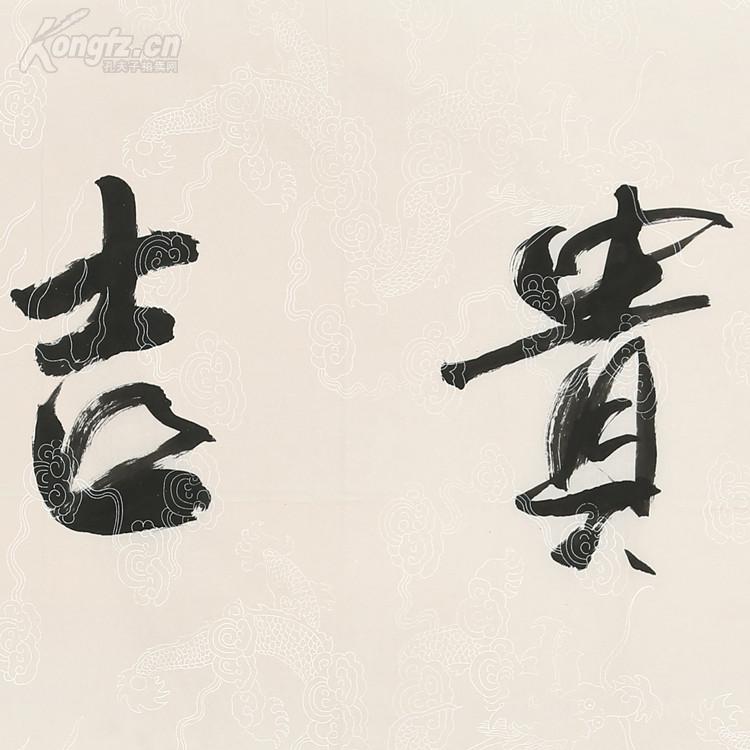 Kongfz.cn
孔夫子拍卖网
貴吉